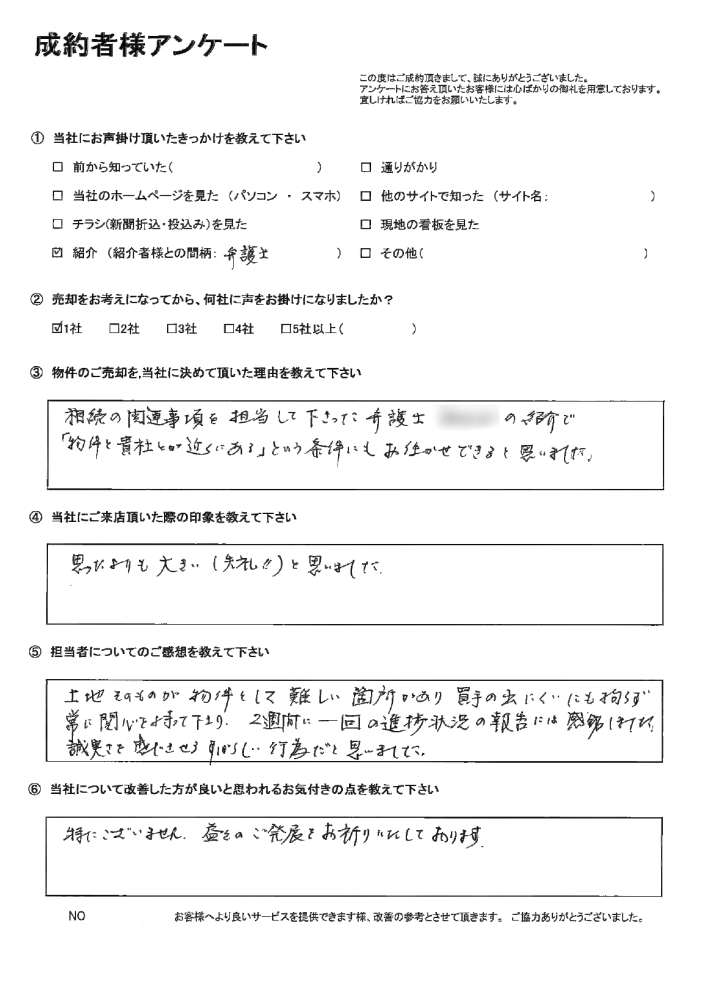 成約者様アンケート
この度はご成約頂きまして、誠にありがとうございました。
アンケートにお答え頂いたお客様には心ばかりの御礼を用意しております。
宜しければご協力をお願いいたします。
① 当社にお声掛け頂いたきっかけを教えて下さい
☐ 前から知っていた( ) ☐ 通りがかり
☐ 当社のホームページを見た (パソコン ・ スマホ) ☐ 他のサイトで知った (サイト名: )
☐ チラシ(新聞折込・投込み)を見た ☐ 現地の看板を見た
☑ 紹介 (紹介者様との間柄: 弁護士 ) ☐ その他( )
② 売却をお考えになってから、何社に声をお掛けになりましたか?
☑1社 ☐2社 ☐3社 ☐4社 ☐5社以上( )
③ 物件のご売却を,当社に決めて頂いた理由を教えて下さい
相続の関連事項を担当して下さった弁護士 の紹介で
「物件と貴社とが近くにある」という条件にもお任かせできると思いました。
④ 当社にご来店頂いた際の印象を教えて下さい
思ったよりも大きい(失礼!!)と思いました。
⑤ 担当者についてのご感想を教えて下さい
土地そのものが物件として難しい箇所があり買手の出にくいにも拘らず
常に関心を持って下さり、2週間に一回の進捗状況の報告には感銘しました。
誠実さを感じさせるすばらしい行為だと思いました。
⑥ 当社について改善した方が良いと思われるお気付きの点を教えて下さい
特にございません。益々のご発展をお祈りいたしております。
NO お客様へより良いサービスを提供できます様、改善の参考とさせて頂きます。 ご協力ありがとうございました。